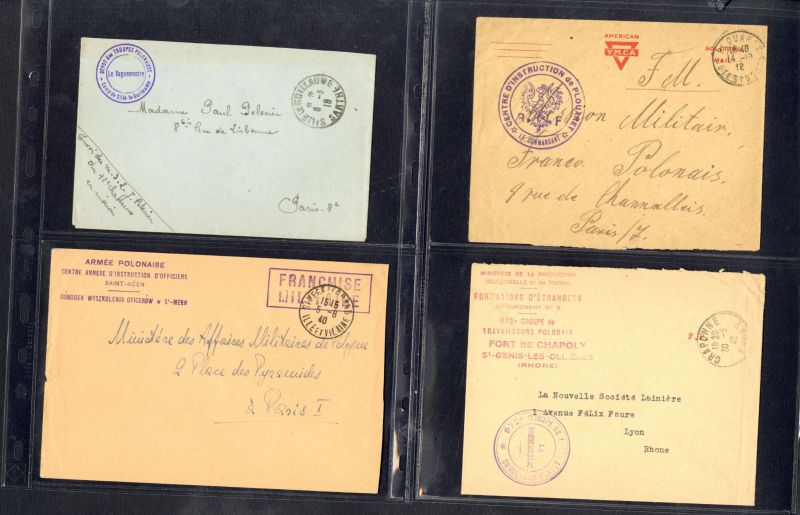 DÉPÔT des TROUPES POLONAISES
Le Vaguemestre
Camp de Sillé-le-Guillaume
SILLÉ LE GUILLAUME
SARTHE
Madame Paul Delesir
8bis Rue de Lisbonne
Paris. 8e
Envoi du
en mission
AMERICAN
Y.M.C.A.
CENTRE D'INSTRUCTION de PLOUARET
R F
LE COMMANDANT
F. M.
Mission Militaire
Franco Polonais
9 rue de Channalleis.
Paris/7.
ARMÉE POLONAISE
CENTRE ANNEXE D'INSTRUCTION D'OFFICIERS
SAINT-MÉEN
OŚRODEK WYSZKOLENIA OFICERÓW W St-MÉEN
FRANCHISE
ILLE ET VILAINE
Ministère des Affaires Militaires de Pologne
2 Place des Pyramides
à Paris I
MINISTÈRE DE LA PRODUCTION
INDUSTRIELLE et du TRAVAIL
FORMATIONS D'ÉTRANGERS
GROUPEMENT N° 
672e GROUPE DE
TRAVAILLEURS POLONAIS
FORT DE CHAPOLY
St-GENIS-LES-OLLIÈRES
(RHONE)
CRAPONNE
RHONE
La Nouvelle Société Lainière
1 Avenue Félix Faure
Lyon
Rhone